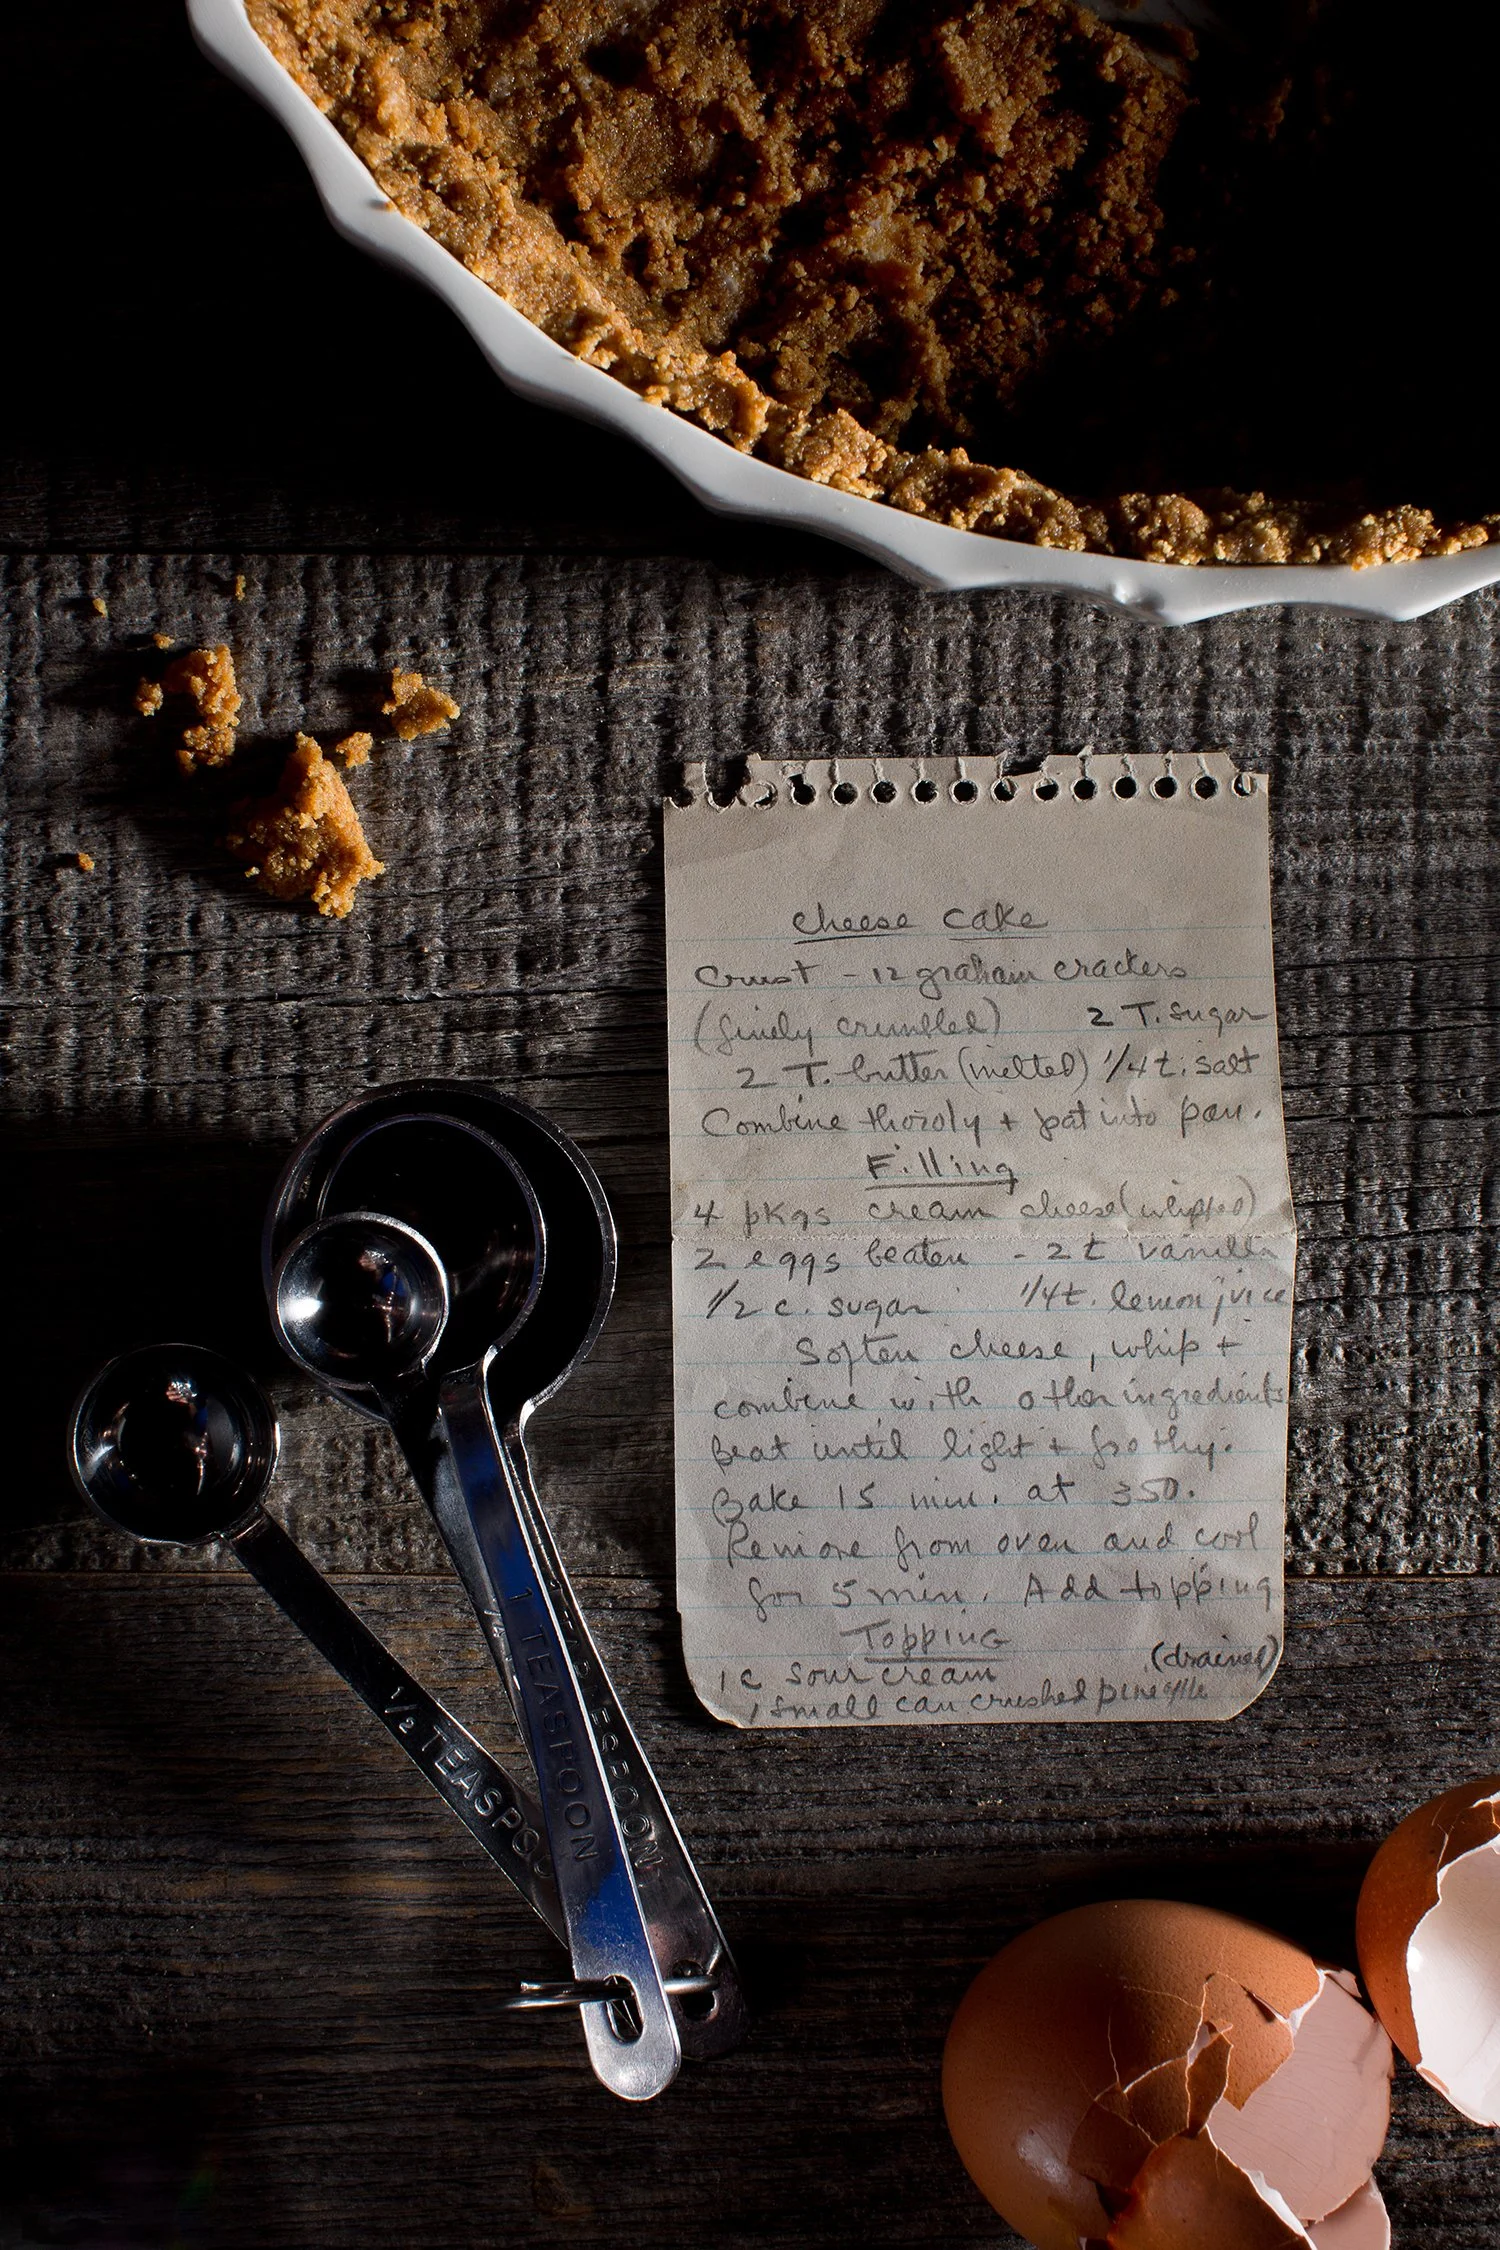 cheese cake
Crust - 12 graham crackers
(finely crumbled) 2 T. sugar
2 T. butter (melted) 1/4 t. salt
Combine thoroly + pat into pan.
Filling
4 pkgs cream cheese (whipped)
2 eggs beaten - 2 t vanilla
1/2 c. sugar 1/4 t. lemon juice
Soften cheese, whip +
combine with other ingredients
Beat until light + frothy.
Bake 15 min. at 350.
Remove from oven and cool
for 5 min. Add topping
Topping
1 c sour cream (drained)
1 small can crushed pineapple
1/2 TEASPOO
1 TEASPOON
1/4